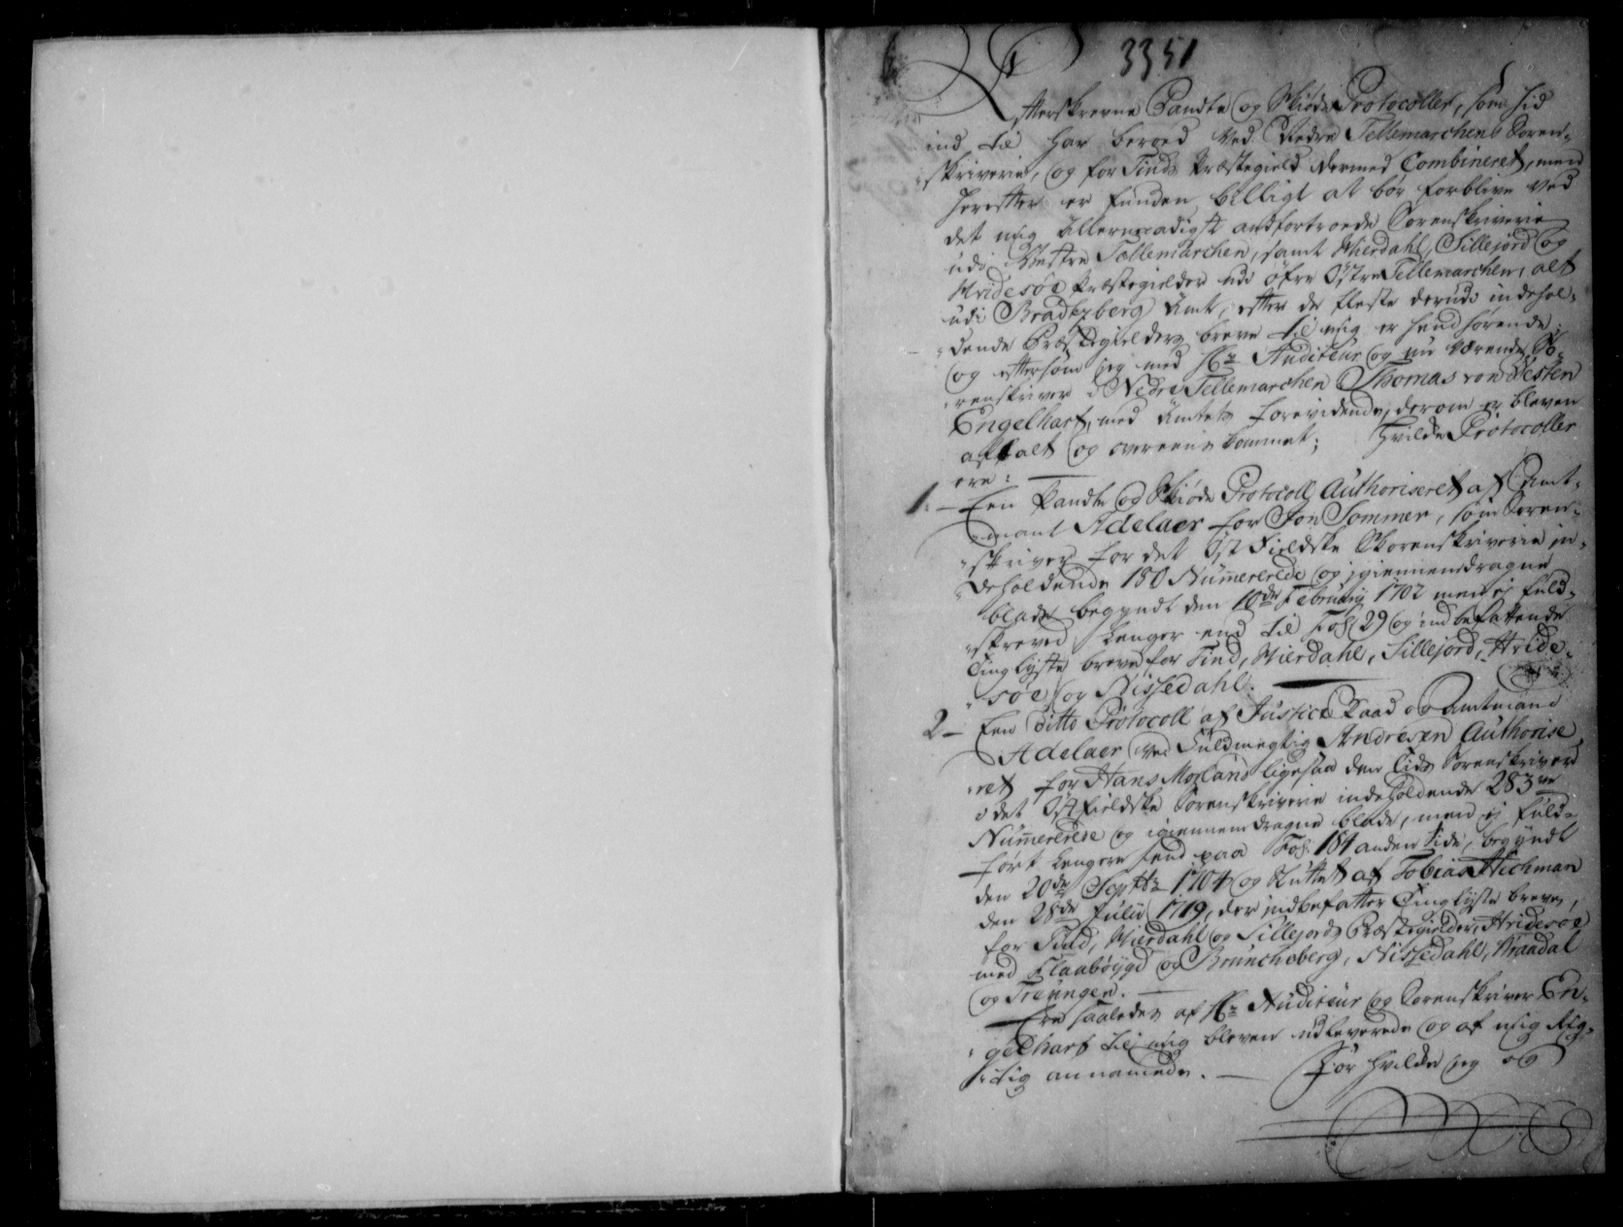 3351
Efterskrevne Pandte og Skiøde Protocoller, som hid
ind til har beroed ved Nedre Tellemarchens Soren-
skriverie, og for Tinds Præstegield dermed Combineret, men
herefter er funden billigt at bør forblive ved
det mig allernaadigst anfortroede Sorenskriverie
udi Vestre Tellemarchen, samt Hierdahl, Sillejord og
Hvidesøe Præstegielder udi øfre Østre Tellemarchen, alt
udi Bradtzberg Amt, efter de fleste derudi indehol-
dende Præstegielders breve til mig er henhørende;
og eftersom jeg med Hr Auditeur og nu værende So-
renskriver i Nedre Tellemarchen Thomas von Westen
Engelhart, med Amtets forevidende, derom er bleven
aftalt og overeens kommet; hvilke Protocoller
ere:
1. – Een Pandte og Skiøde Protocoll Authoriseret af Amt-
mand Adelaer for Jon Sommer, som Soren-
skriver for det Øst Fieldske Sorenskriverie in-
deholdende 180 Nummererede og igiennemdragne
blade begyndt den 10de February 1702 men ej fuld-
skreved længer end til Fol 29 og indbefattende
Tinglyste breve for Tind, Hierdahl, Sillejord, Hvide-
søe og Nissedahl.
2 – Een ditto Protocoll af Justice Raad og Amtmand
Adelaer ved Fuldmegtig Andresen Authorise-
ret for Hans Morland ligesaa den Tids Sorenskriver
i det Østfieldske Sorenskriverie indeholdende 283
Nummererede og igiennemdragne blade, men ej fuld-
ført længere hend paa Fol. 184 anden Side, begyndt
den 20de Septbr 1704 og Sluttet af Tobias Hichman
den 28de Julii 1719, der indbefatter Tinglyste breve,
for Tind, Hierdahl og Sillejords Præstegielder, Hvidesøe
med Flaabøygd og Bruncheberg, Nissedahl, Vraadal
og Treungen.
Ere saaledes af Hr Auditeur og Sorenskriver En-
gelhart til mig bleven udleverede og af mig Rig-
tig annamede. – For hvilke jeg og